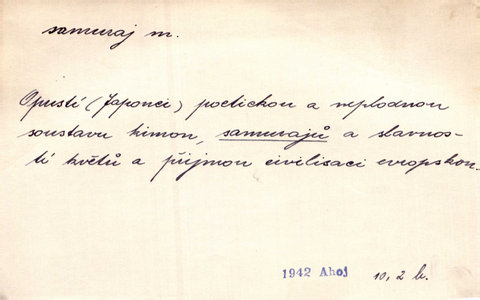 samuraj m.
Opustí (Japonci) poetickou a neplodnou
soustavu kimon, samurajů a slavnos-
tí květů a přijmou civilisaci evropskou.
1942 Ahoj 10, 2 b.